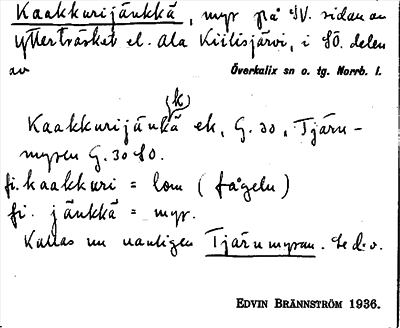 Kaakkurijänkkä, myr på SV. sidan av
Ytterträsket el. Ala Kiilisjärvi, i SO. delen
av Överkalix sn o. tg. Norrb. l.
(k)
Kaakkurijänkä ek, G. 30, Tjäru-
myren G. 30 SO.
fi. kaakkuri = lom (fågeln)
fi. jänkkä = myr.
Kallas nu vanligen Tjärumyran. Se d:o.
EDVIN BRÄNNSTRÖM 1936.